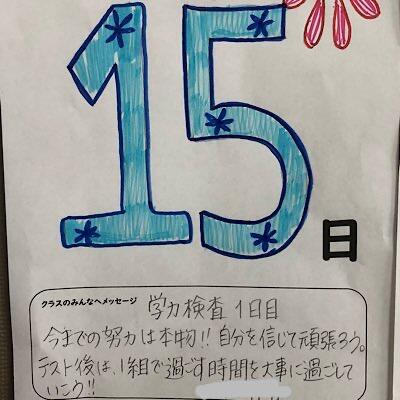 15
日
クラスのみんなへメッセージ 学力検査 1日目
今までの努力は本物!! 自分を信じて頑張ろう。
テスト後は、1組で過ごす時間を大事に過ごして
いこう!!